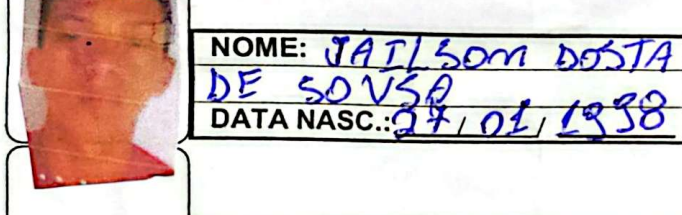 NOME: JAILSOM DOSTA
DE SOUSA
DATA NASC.: 27/01/1998